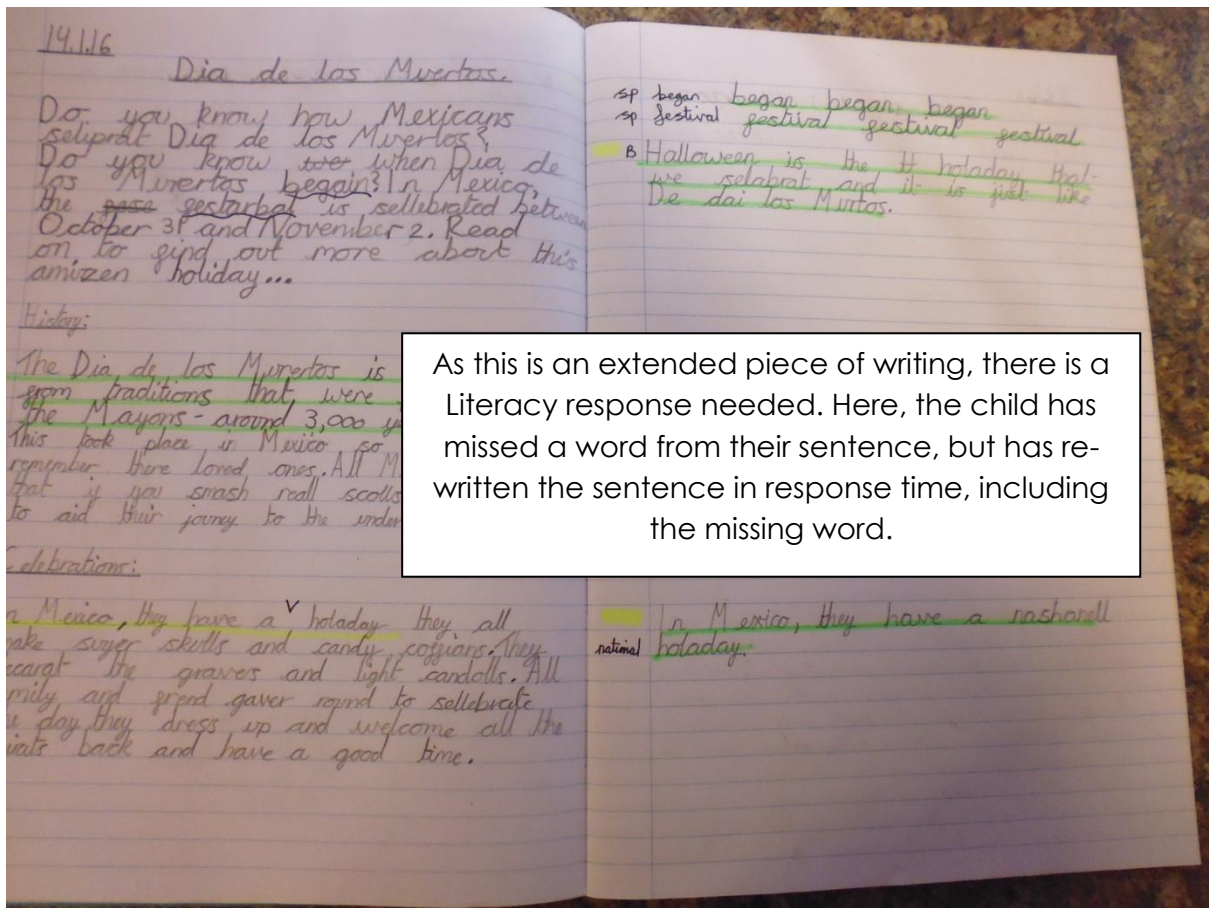 14.1.16
Dia de los Muertos.
Do you know how Mexicans
seluprat Dia de los Muertos?
Do you know when Dia de
los Muertos begain? In Mexico,
the gestarbal is sellebrated between
October 31 and November 2. Read
on to gind out more about this
amizen holiday...
History:
The Dia de los Munertos is
grom traditions that were
the Mayons - around 3,000 y
This took place in Mexico so
remember there loved ones. All M
that if you smash reall scolls
to aid their jouney to the under
Celebrations:
In Mexico, they have a v holaday they all
make suger skulls and candy coffians. They
the graves and light candolls. All
and grend gaver round to sellebrate
day they dress up and welcome all the
back and have a good time.
sp began began began began
sp festival gestival gestival gestival
B Halloween is the H holaday that
we selabrat and it is just like
De dai los Murtos.
As this is an extended piece of writing, there is a
Literacy response needed. Here, the child has
missed a word from their sentence, but has re-
written the sentence in response time, including
the missing word.
In Mexico, they have a nashonell
national holaday.